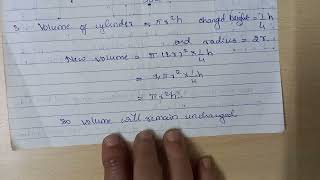 3. Volume of cylinder = πr²h changed height = 1/4 h
and radius = 2r.
New volume = π(2r)² × 1/4 h
= 4πr² × 1/4 h
= πr²h.
so volume will remain unchanged